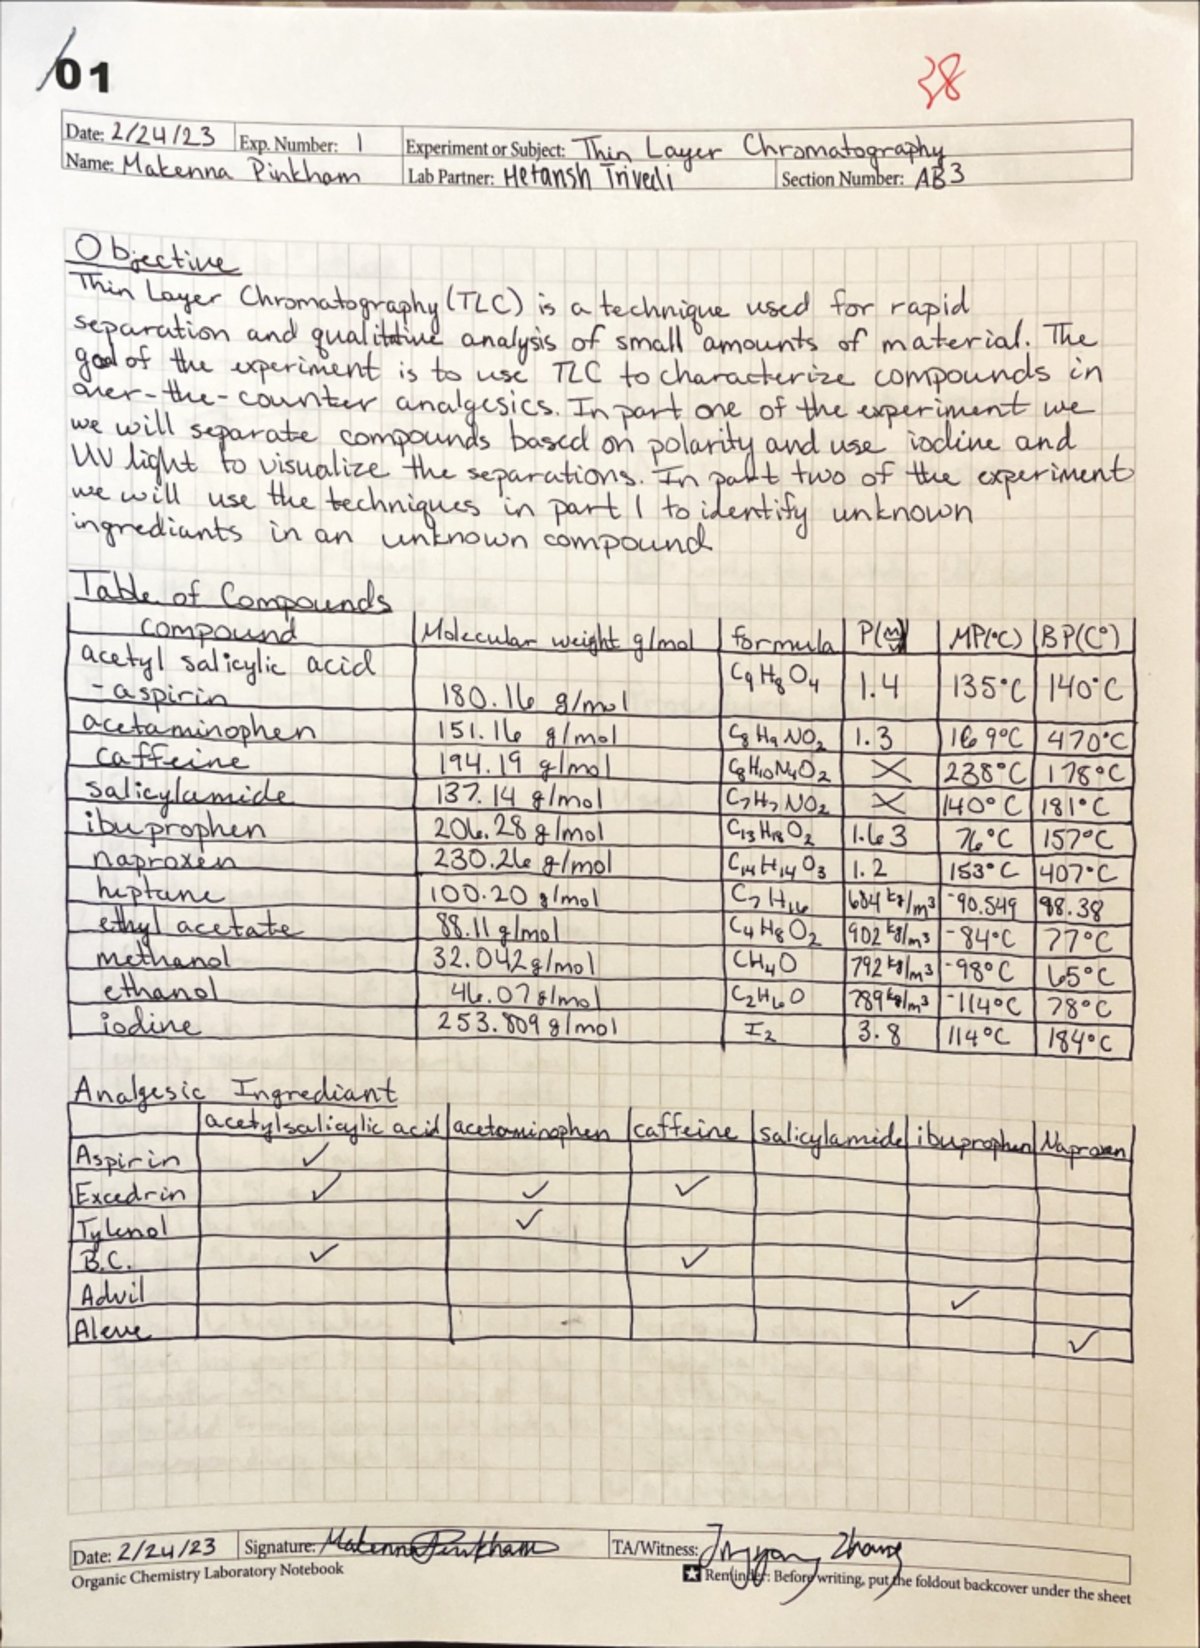 01
38
Date: 2/24/23 Exp. Number: 1 Experiment or Subject: Thin Layer Chromatography
Name: Makenna Pinkham Lab Partner: Hetansh Trivedi Section Number: AB3
Objective
Thin Layer Chromatography (TLC) is a technique used for rapid
separation and qualitative analysis of small amounts of material. The
goal of the experiment is to use TLC to characterize compounds in
over-the-counter analgesics. In part one of the experiment we
we will separate compounds based on polarity and use iodine and
UV light to visualize the separations. In part two of the experiment
we will use the techniques in part 1 to identify unknown
ingrediants in an unknown compound
Table of Compounds
compound Molecular weight g/mol formula P(m/v) MP(°C) BP(C°)
acetyl salicylic acid
-aspirin 180.16 g/mol C9H8O4 1.4 135°C 140°C
acetaminophen 151.16 g/mol C8H9NO2 1.3 169°C 470°C
caffeine 194.19 g/mol C8H10N4O2 X 238°C 178°C
salicylamide 137.14 g/mol C7H7NO2 X 140°C 181°C
ibuprophen 206.28 g/mol C13H18O2 1.03 76°C 157°C
naproxen 230.26 g/mol C14H14O3 1.2 153°C 407°C
heptane 100.20 g/mol C7H16 684 kg/m³ -90.549 98.38
ethyl acetate 88.11 g/mol C4H8O2 902 kg/m³ -84°C 77°C
methanol 32.042 g/mol CH4O 792 kg/m³ -98°C 65°C
ethanol 46.07 g/mol C2H6O 789 kg/m³ -114°C 78°C
iodine 253.809 g/mol I2 3.8 114°C 184°C
Analgesic Ingrediant
acetylsalicylic acid acetominophen caffeine salicylamide ibuprophen Naproxen
Aspirin ✓
Excedrin ✓ ✓ ✓
Tylenol ✓
B.C. ✓ ✓
Advil ✓
Aleve ✓
Date: 2/24/23 Signature: Makenna Pinkham TA/Witness: Zhang
Organic Chemistry Laboratory Notebook Reminder: Before writing, put the foldout backcover under the sheet